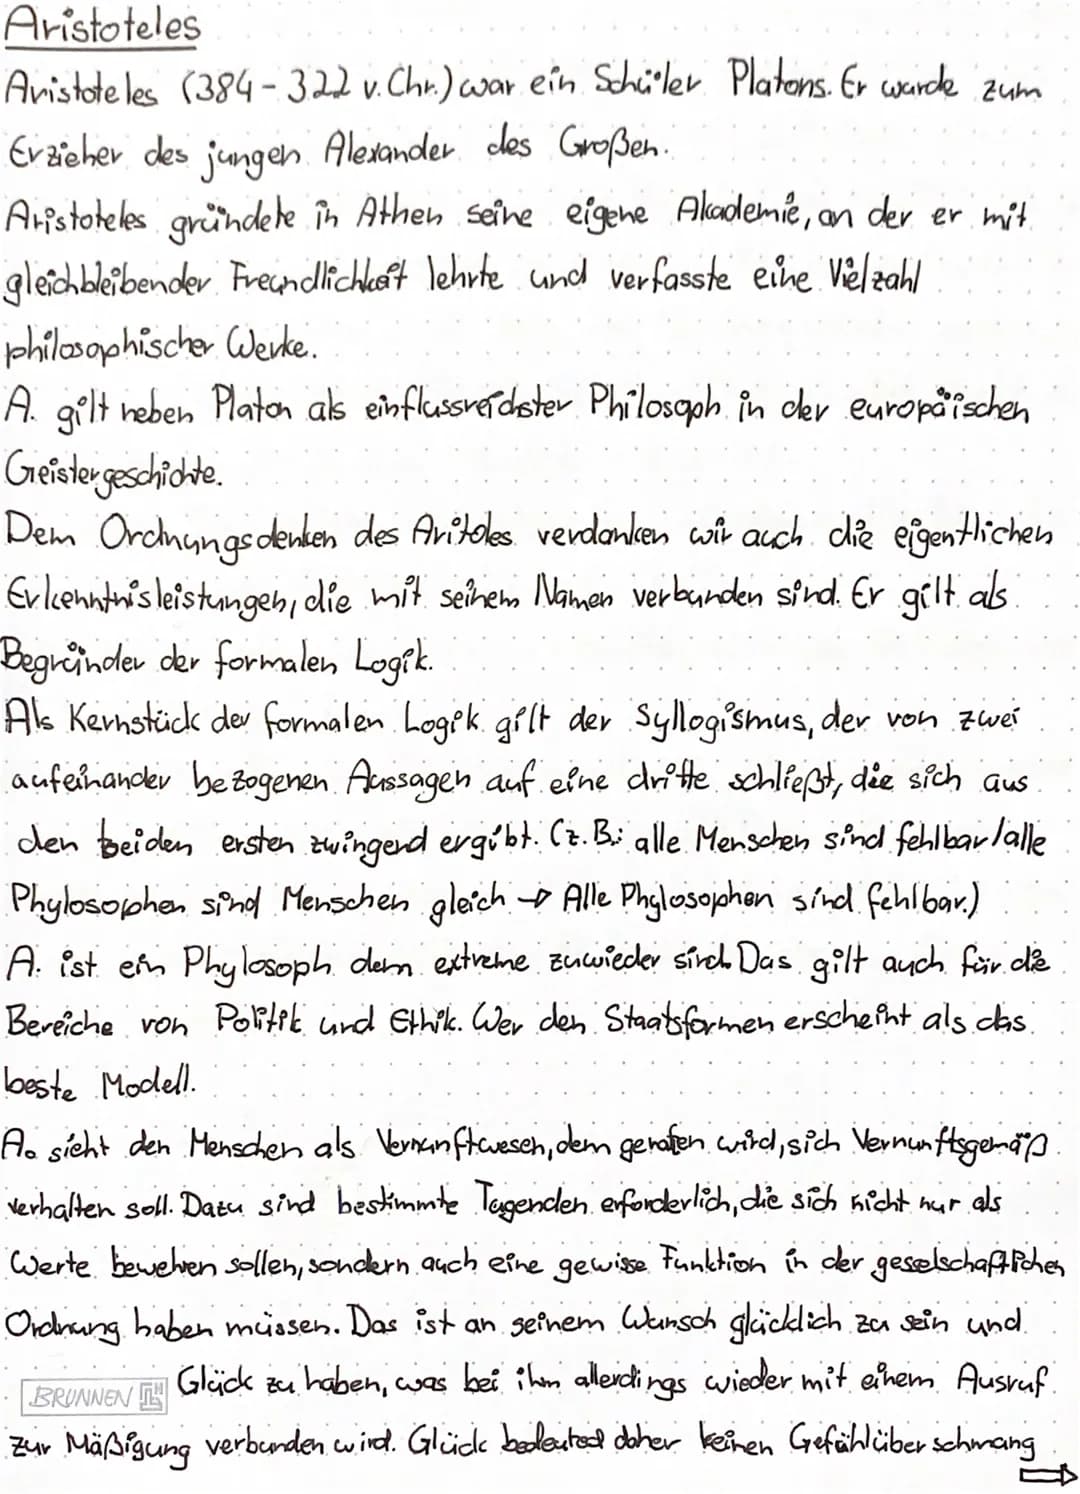 Aristoteles
Aristoteles (384-322 v. Chr.) war ein Schüler Platons. Er wurde zum
Erzieher des jungen Alexander des Großen.
Aristoteles gründete in Athen seine eigene Akademie, an der er mit
gleichbleibender Freundlichkeit lehrte und verfasste eine Vielzahl
philosophischer Werke.
A. gilt neben Platon als einflussreichster Philosoph in der europäischen
Geistergeschichte.
Dem Ordnungsdenken des Aritoles verdanken wir auch die eigentlichen
Erkenntnisleistungen, die mit seinem Namen verbunden sind. Er gilt als
Begründer der formalen Logik.
Als Kernstück der formalen Logik gilt der Syllogismus, der von zwei
aufeinander bezogenen Aussagen auf eine dritte schließt, die sich aus
den beiden ersten zwingend ergibt. (z.B.: alle Menschen sind fehlbar/alle
Phylosophen sind Menschen gleich → Alle Phylosophen sind fehlbar.)
A. ist ein Phylosoph dem extreme zuwieder sind. Das gilt auch für die
Bereiche von Politik und Ethik. Wer den Staatsformen erscheint als das
beste Modell.
A. sieht den Menschen als Vernunftwesen, dem geraten wird, sich Vernunftsgemäß
verhalten soll. Dazu sind bestimmte Tugenden erforderlich, die sich nicht nur als
Werte bewehren sollen, sondern auch eine gewisse Funktion in der geselschaftlichen
Ordnung haben müssen. Das ist an seinem Wunsch glücklich zu sein und
BRUNNEN Glück zu haben, was bei ihm allerdings wieder mit einem Ausruf
zur Mäßigung verbunden wird. Glück bedeuted daher keinen Gefühlüberschmang
⇒